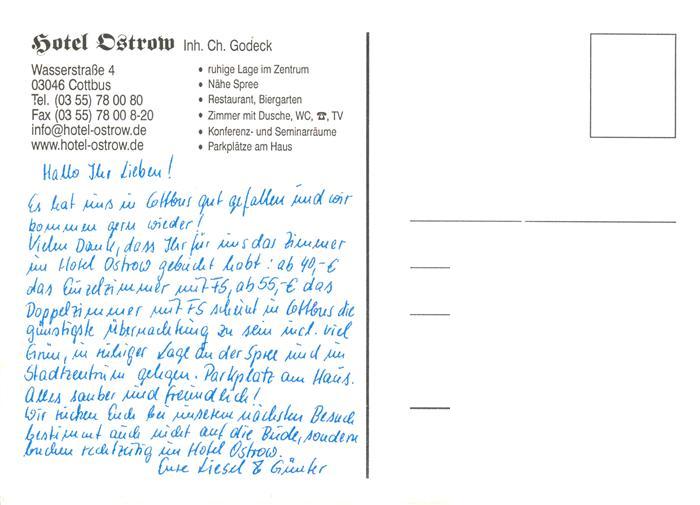 Hotel Ostrow Inh. Ch. Godeck
Wasserstraße 4
03046 Cottbus
Tel. (03 55) 78 00 80
Fax (03 55) 78 00 8-20
info@hotel-ostrow.de
www.hotel-ostrow.de
• ruhige Lage im Zentrum
• Nähe Spree
• Restaurant, Biergarten
• Zimmer mit Dusche, WC, ☎, TV
• Konferenz- und Seminarräume
• Parkplätze am Haus
Hallo Ihr Lieben!
Es hat uns in Cottbus gut gefallen und wir
kommen gern wieder!
Vielen Dank, dass Ihr für uns das Zimmer
im Hotel Ostrow gebucht habt: ab 40,-€
das Einzelzimmer mit FS, ab 55,-€ das
Doppelzimmer mit FS scheint in Cottbus die
günstigste Übernachtung zu sein incl. viel
Grün, in ruhiger Lage an der Spree und im
Stadtzentrum gelegen. Parkplatz am Haus.
Alles sauber und freundlich!
Wir rücken Euch bei unserem nächsten Besuch
bestimmt auch nicht auf die Bude, sondern
buchen rechtzeitig im Hotel Ostrow.
Eure Liesel & Günter